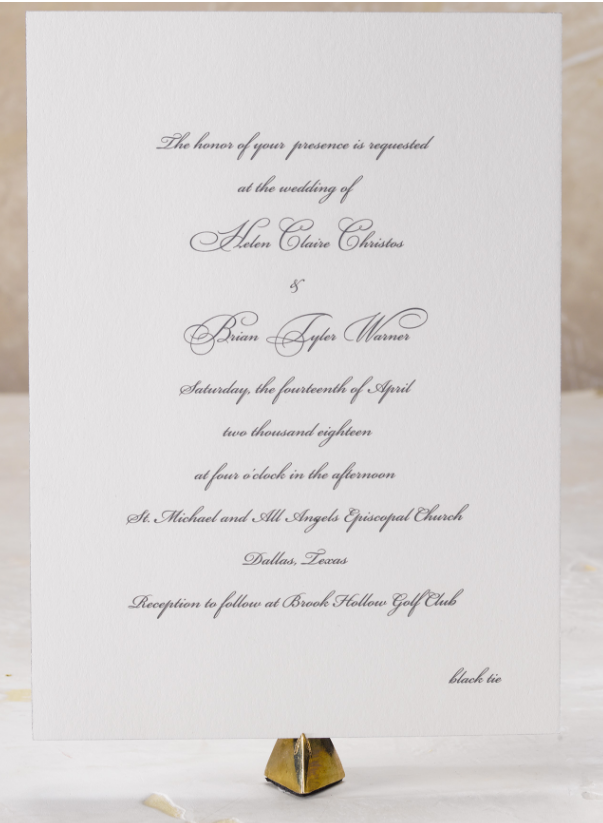 The honor of your presence is requested
at the wedding of
Helen Claire Christos
&
Brian Tyler Warner
Saturday, the fourteenth of April
two thousand eighteen
at four o'clock in the afternoon
St. Michael and All Angels Episcopal Church
Dallas, Texas
Reception to follow at Brook Hollow Golf Club
black tie